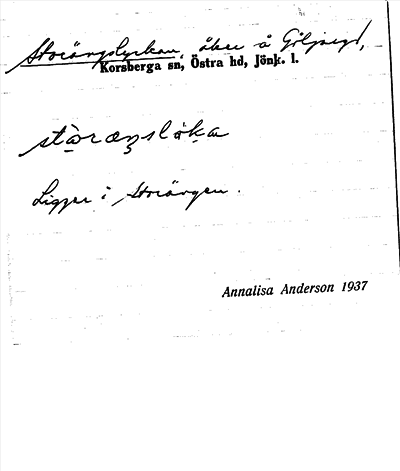 Storängslyckan, åker å Göljaryd,
Korsberga sn, Östra hd, Jönk. l.
storæŋslöka
Ligger i Storängen.
Annalisa Anderson 1937